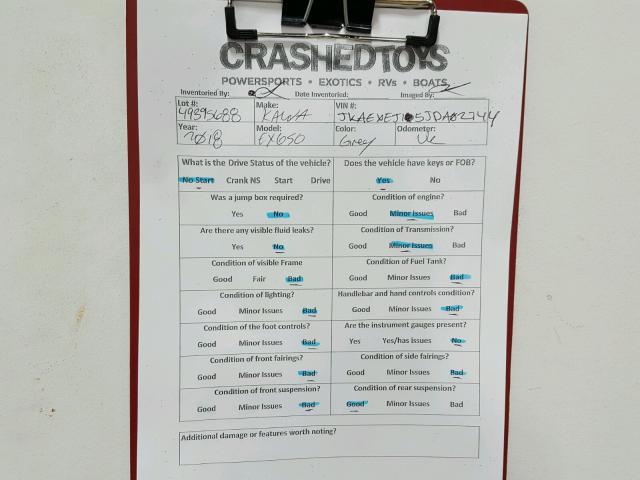 CRASHEDTOYS
POWERSPORTS • EXOTICS • RVs • BOATS
Inventoried By: Date Inventoried: Imaged By:
Lot #: Make: VIN #:
49395688 KAWA
Year: Model: Color: Odometer:
2018 EX650 Grey UK
What is the Drive Status of the vehicle? Does the vehicle have keys or FOB?
No Start Crank NS Start Drive Yes No
Was a jump box required? Condition of engine?
Yes No Good Minor issues Bad
Are there any visible fluid leaks? Condition of Transmission?
Yes No Good Minor issues Bad
Condition of visible Frame Condition of Fuel Tank?
Good Fair Bad Good Minor Issues Bad
Condition of lighting? Handlebar and hand controls condition?
Good Minor Issues Bad Good Minor Issues Bad
Condition of the foot controls? Are the instrument gauges present?
Good Minor Issues Bad Yes Yes/has issues No
Condition of front fairings? Condition of side fairings?
Good Minor Issues Bad Good Minor Issues Bad
Condition of front suspension? Condition of rear suspension?
Good Minor Issues Bad Good Minor Issues Bad
Additional damage or features worth noting?